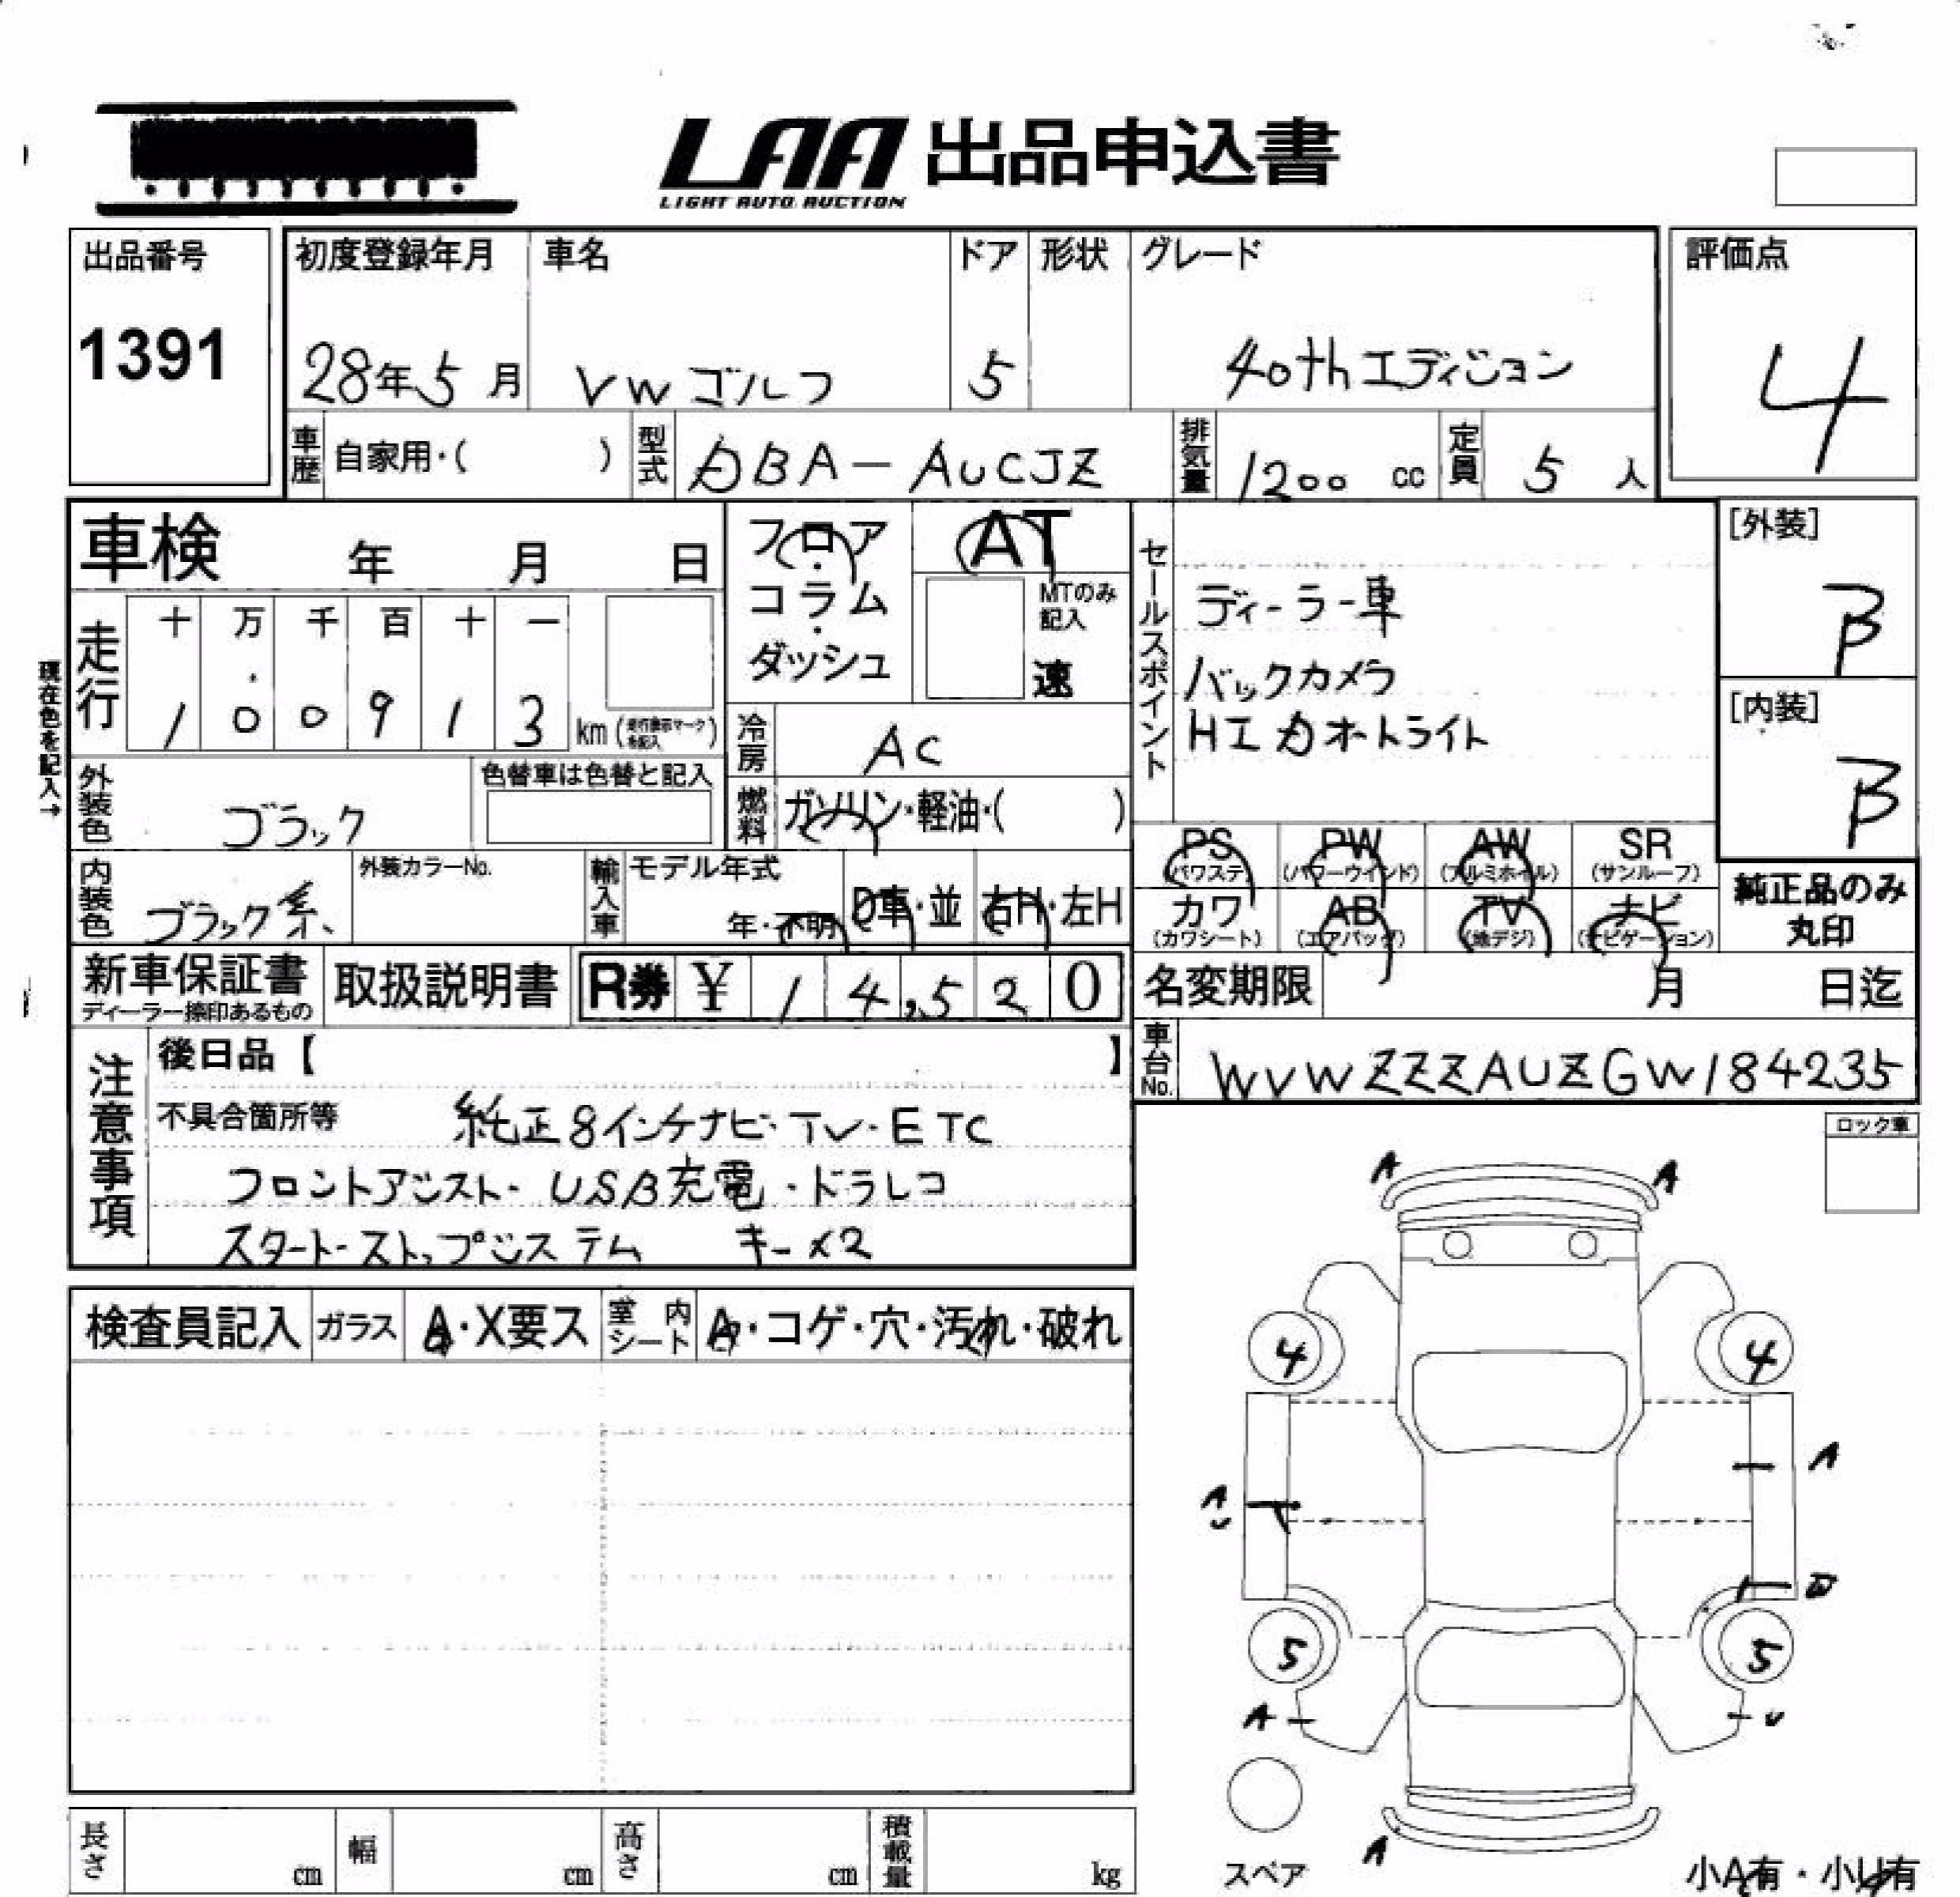 LAA 出品申込書
LIGHT AUTO AUCTION
出品番号
1391
初度登録年月
28年5月
車名
VWゴルフ
ドア
5
形状
グレード
40thエディション
評価点
4
車歴 自家用・( )
型式 DBA-AUCJZ
排気量 1200 cc
定員 5 人
車検 年 月 日
現在色を記入→
走行
十 万 千 百 十 一
1 0 0 9 1 3 km (走行表示マークを記入)
フロア・コラム・ダッシュ
AT
MTのみ記入
速
冷房 AC
燃料 ガソリン・軽油・( )
セールスポイント
ディーラー車
バックカメラ
HIDオートライト
[外装]
B
[内装]
B
外装色 ブラック
色替車は色替と記入
内装色 ブラック系
外装カラーNo.
輸入車 モデル年式
年・不明 D車・並 右H・左H
PS (パワステ) PW (パワーウインド) AW (アルミホイル) SR (サンルーフ)
カワ (カワシート) AB (エアバッグ) TV (地デジ) ナビ (ナビゲーション)
純正品のみ
丸印
新車保証書
ディーラー捺印あるもの
取扱説明書
R券 ¥ 14,520
名変期限 月 日迄
車台No. WVWZZZAUZGW184235
注意事項
後日品【 】
不具合箇所等 純正8インチナビ・TV・ETC
フロントアシスト・USB充電・ドラレコ
スタート・ストップシステム キー×2
ロック車
検査員記入 ガラス A・X要ス 室内シート A・コゲ・穴・汚れ・破れ
A A
4 4
A
A
U
5 5
A U
A
スペア
小A有・小U有
長さ cm 幅 cm 高さ cm 積載量 kg